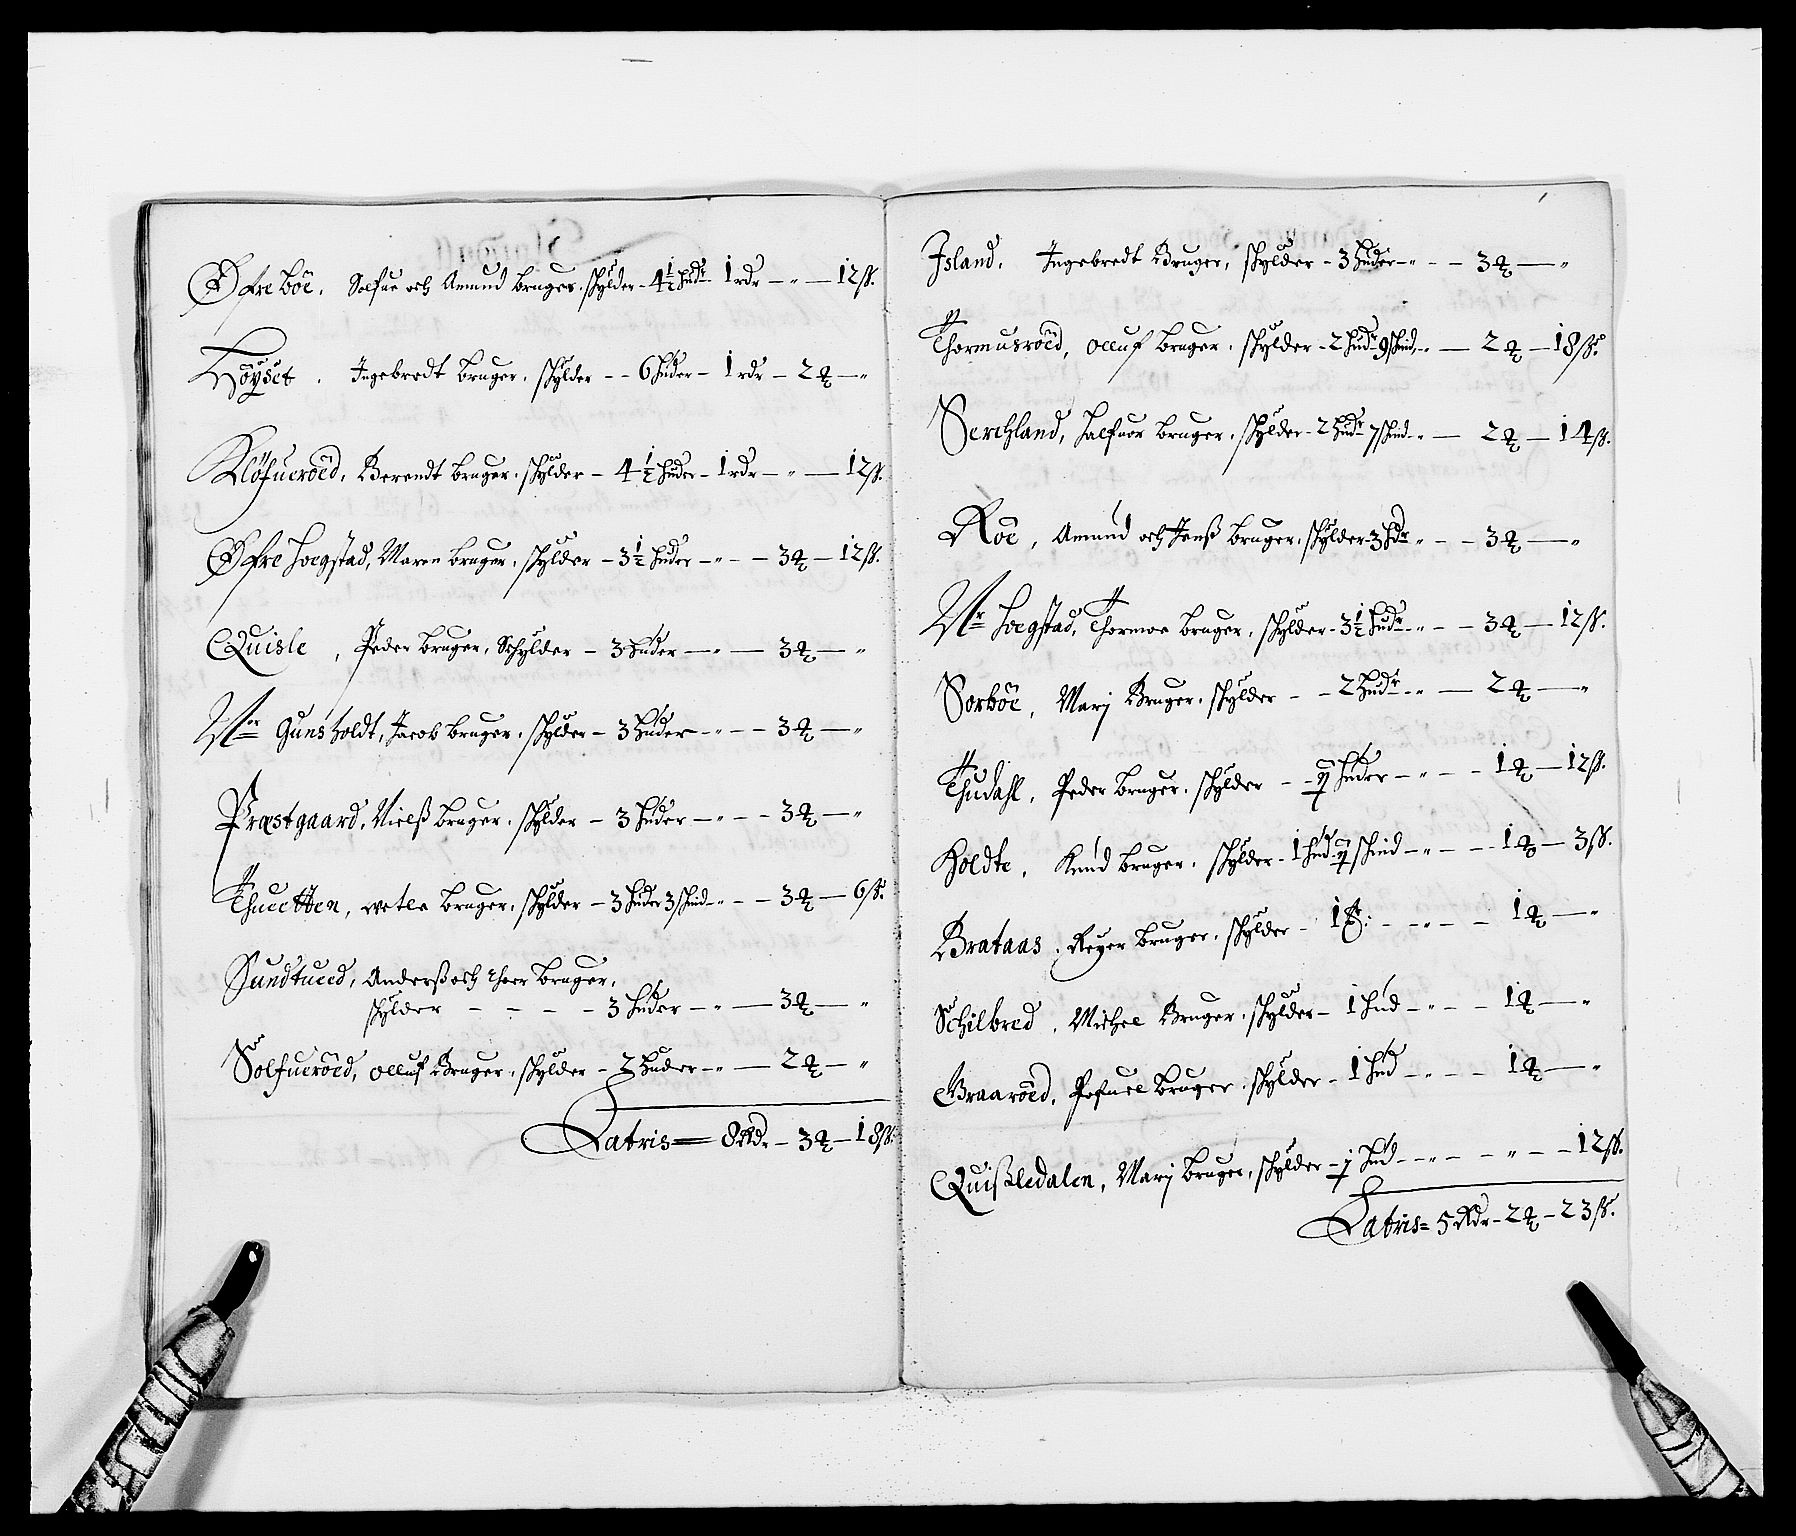 Øfre böe, Solfue och Amund bruger, schylder - 4½ hudr - 1 rdr - " - 12 ß.
Höyset, Ingebredt bruger, schylder - - 6 huder - 1 rdr - 2 ꝗ - "
Klöfueröed, Berendt bruger, schylder - 4½ huder - 1 rdr - " - 12 ß.
Øfre hoegstad, Maren bruger, schylder - 3½ huder - " - - 3 ꝗ - 12 ß.
Quisle, Peder bruger, Schylder - 3 huder - " - 3 ꝗ - "
Nor Gunsholdt, Jacob bruger, schylder - 3 huder - " - - 3 ꝗ - "
Præstgaard, Nielß bruger, schylder - 3 huder - " - - 3 ꝗ - "
Thuetten, vetle bruger, schylder - 3 huder 3 schind - " - - 3 ꝗ - 6 ß.
Sundtued, Anderß och thoer bruger,
schylder - - - - 3 huder - " - 3 ꝗ - "
Solfueröed, Olluf Bruger, schylder - 2 huder - " - 2 ꝗ - "
Latris = 8 Rdr - 3 ꝗ - 18 ß.
Jsland, Ingebredt Bruger, schylder - 3 huder - " - - 3 ꝗ - "
Thormusröed, Olluf bruger, schylder - 2 hudr 9 schind - " - 2 ꝗ - 18 ß.
Serchland, halfuor bruger, schylder - 2 hudr 7 schind - " - 2 ꝗ - 14 ß.
Röe, Amund och Jenß bruger, schylder - 3 hdr - " - - 3 ꝗ - "
Nr hoegstad, Thormoe bruger, schylder - 3½ hudr - " - - 3 ꝗ - 12 ß.
Sorböe, Marj Bruger, schylder - - 2 hudr - " - 2 ꝗ - "
Thudahl, Peder bruger, schylder - - huder - " - - 1 ꝗ - 12 ß.
Holdte, Knud bruger, schylder - 1 hud schind - " - - 1 ꝗ - 3 ß.
Brataas, Reyer bruger, schylder - 1 - " - - 1 ꝗ - "
Schilbred, Michel Bruger, schylder - 1 hud - " - - 1 ꝗ - "
Braaröed, Pofuel bruger, schylder - 1 hud - " - - 1 ꝗ - "
Quißledalen, Marj bruger, schylder - hud - " - - " - - 12 ß.
Latris = 5 Rdr - 2 ꝗ - 23 ß.